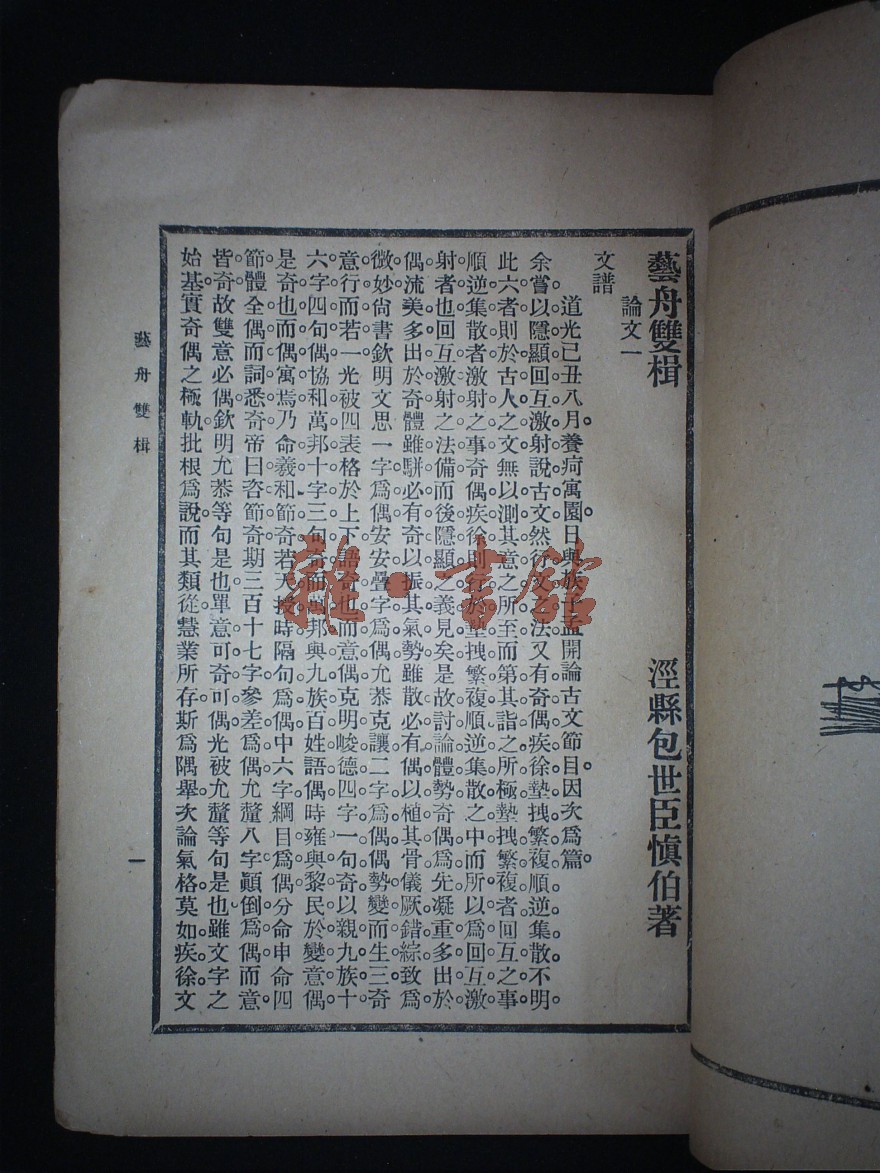 藝舟雙楫　涇縣包世臣慎伯著
論文一
文譜
道光己丑八月養疴寓園日與族子孟開論古文節目因次爲篇。
余嘗以隱顯回互激射說古文然行文之法又有奇偶疾徐墊拽繁複順逆集散。不明
此六者則於古人之文無以測其意之所至而第其詣之所極墊拽繁複者回互之事。
順逆集散者激射之事奇偶疾徐則行於墊拽繁複順逆集散之中而所以爲回互激
射者也回互激射之法備而後隱顯之義見矣是故討論體勢奇偶爲先凝重多出於
偶流美多出於奇體雖駢必有奇以振其氣勢雖散必有偶以植其骨儀厥錯綜致爲
微妙尙書欽明文思一字爲偶安安疊字爲偶允恭克讓二字爲偶偶勢變而生三奇
意行而若一光被四表格於上下語奇也而意偶克明峻德四字一句奇以親九族十
六字四句偶協和萬邦十字三句奇而萬邦與九族百姓語偶時雍與黎民於變意偶
是奇也而偶寓焉乃命羲和節奇若天授時隔句爲偶中六字綱目爲偶分命申命四
節體全偶而詞悉奇帝曰咨節奇期三百十七字參差爲偶允釐八字顚倒爲偶而意
皆奇故雙意必偶欽明允恭等句是也單意可奇可偶光被允釐等句是也雖文字之
始基實奇偶之極軌批根爲說而其類從慧業所存斯爲隅舉。次論氣格莫如疾徐。文
藝舟雙楫
一
雜·書館